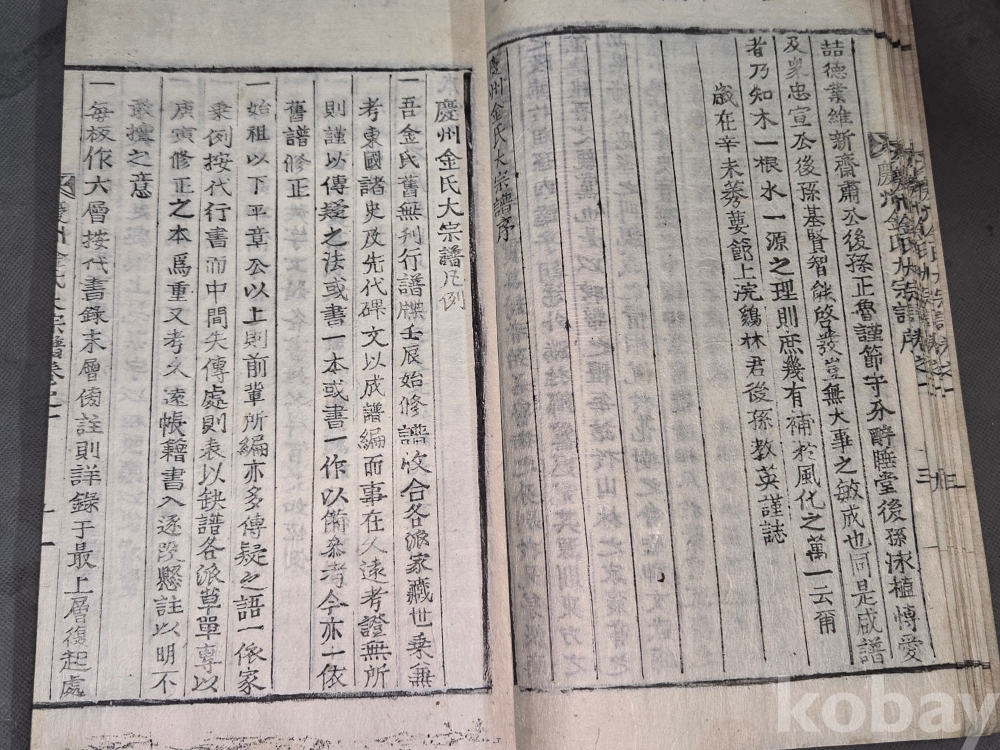 喆德業維新齋肅公後孫正魯謹節守分醉睡堂後孫泳植愽愛
及衆忠宣公後孫基賢智能啓發豈無大事之敏成也同是成譜
者乃知木一根水一源之理則庶幾有補於風化之萬一云爾
歲在辛未葽節上浣鷄林君後孫教英謹誌
慶州金氏大宗譜序
慶州金氏大宗譜凡例
一吾金氏舊無刊行譜牒壬辰始修譜收合各派家藏世乗兼
考東國諸史及先代碑文以成譜編而事在久遠考證無所
則謹以傳疑之法或書一本或書一作以備叅考今亦一依
舊譜修正
一始祖以下平章公以上則前軰所編亦多傳疑之語一依家
乗例按代行書而中間失傳處則表以缺譜各派草單專以
庚寅修正之本爲重又考久遠帳籍書入逐段懸註以明不
敢擅之意
一每板作六層按代書錄末層傍註則詳錄于最上層復起處
kobay